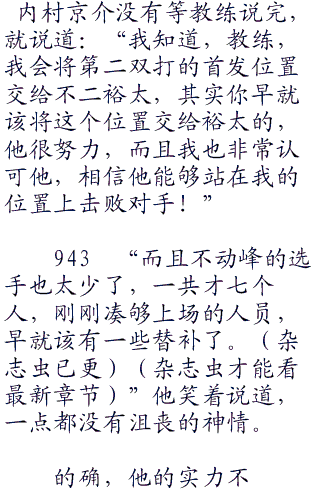 内村京介没有等教练说完，
就说道：“我知道，教练，
我会将第二双打的首发位置
交给不二裕太，其实你早就
该将这个位置交给裕太的，
他很努力，而且我也非常认
可他，相信他能够站在我的
位置上击败对手！”
943 “而且不动峰的选
手也太少了，一共才七个
人，刚刚凑够上场的人员，
早就该有一些替补了。（杂
志虫已更）（杂志虫才能看
最新章节）”他笑着说道，
一点都没有沮丧的神情。
的确，他的实力不